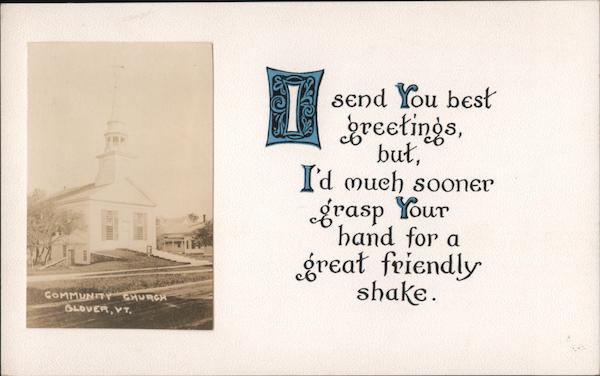 COMMUNITY CHURCH
GLOVER, VT.
I send You best
greetings,
but,
I'd much sooner
grasp Your
hand for a
great friendly
shake.